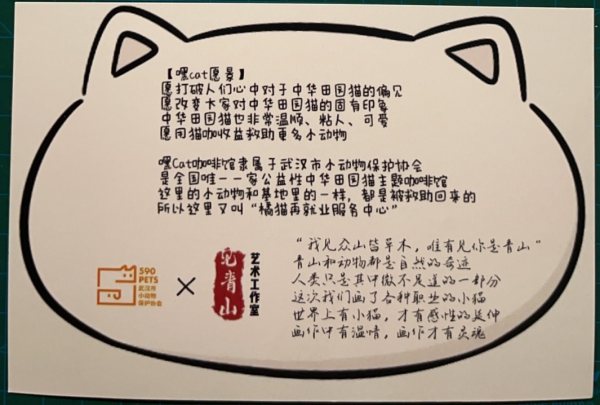 【嘿cat愿景】
愿打破人们心中对于中华田园猫的偏见
愿改变大家对中华田园猫的固有印象
中华田园猫也非常温顺、粘人、可爱
愿用猫咖收益救助更多小动物
嘿Cat咖啡馆隶属于武汉市小动物保护协会
是全国唯一一家公益性中华田园猫主题咖啡馆
这里的小动物和基地里的一样，都是被救助回来的
所以这里又叫“橘猫再就业服务中心”
590
PETS
武汉市
小动物
保护协会
×
见青山
艺术工作室
“我见众山皆草木，唯有见你是青山”
青山和动物都是自然的奇迹
人类只是其中微不足道的一部分
这次我们画了各种职业的小猫
世界上有小猫，才有感性的延伸
画作中有温情，画作才有灵魂